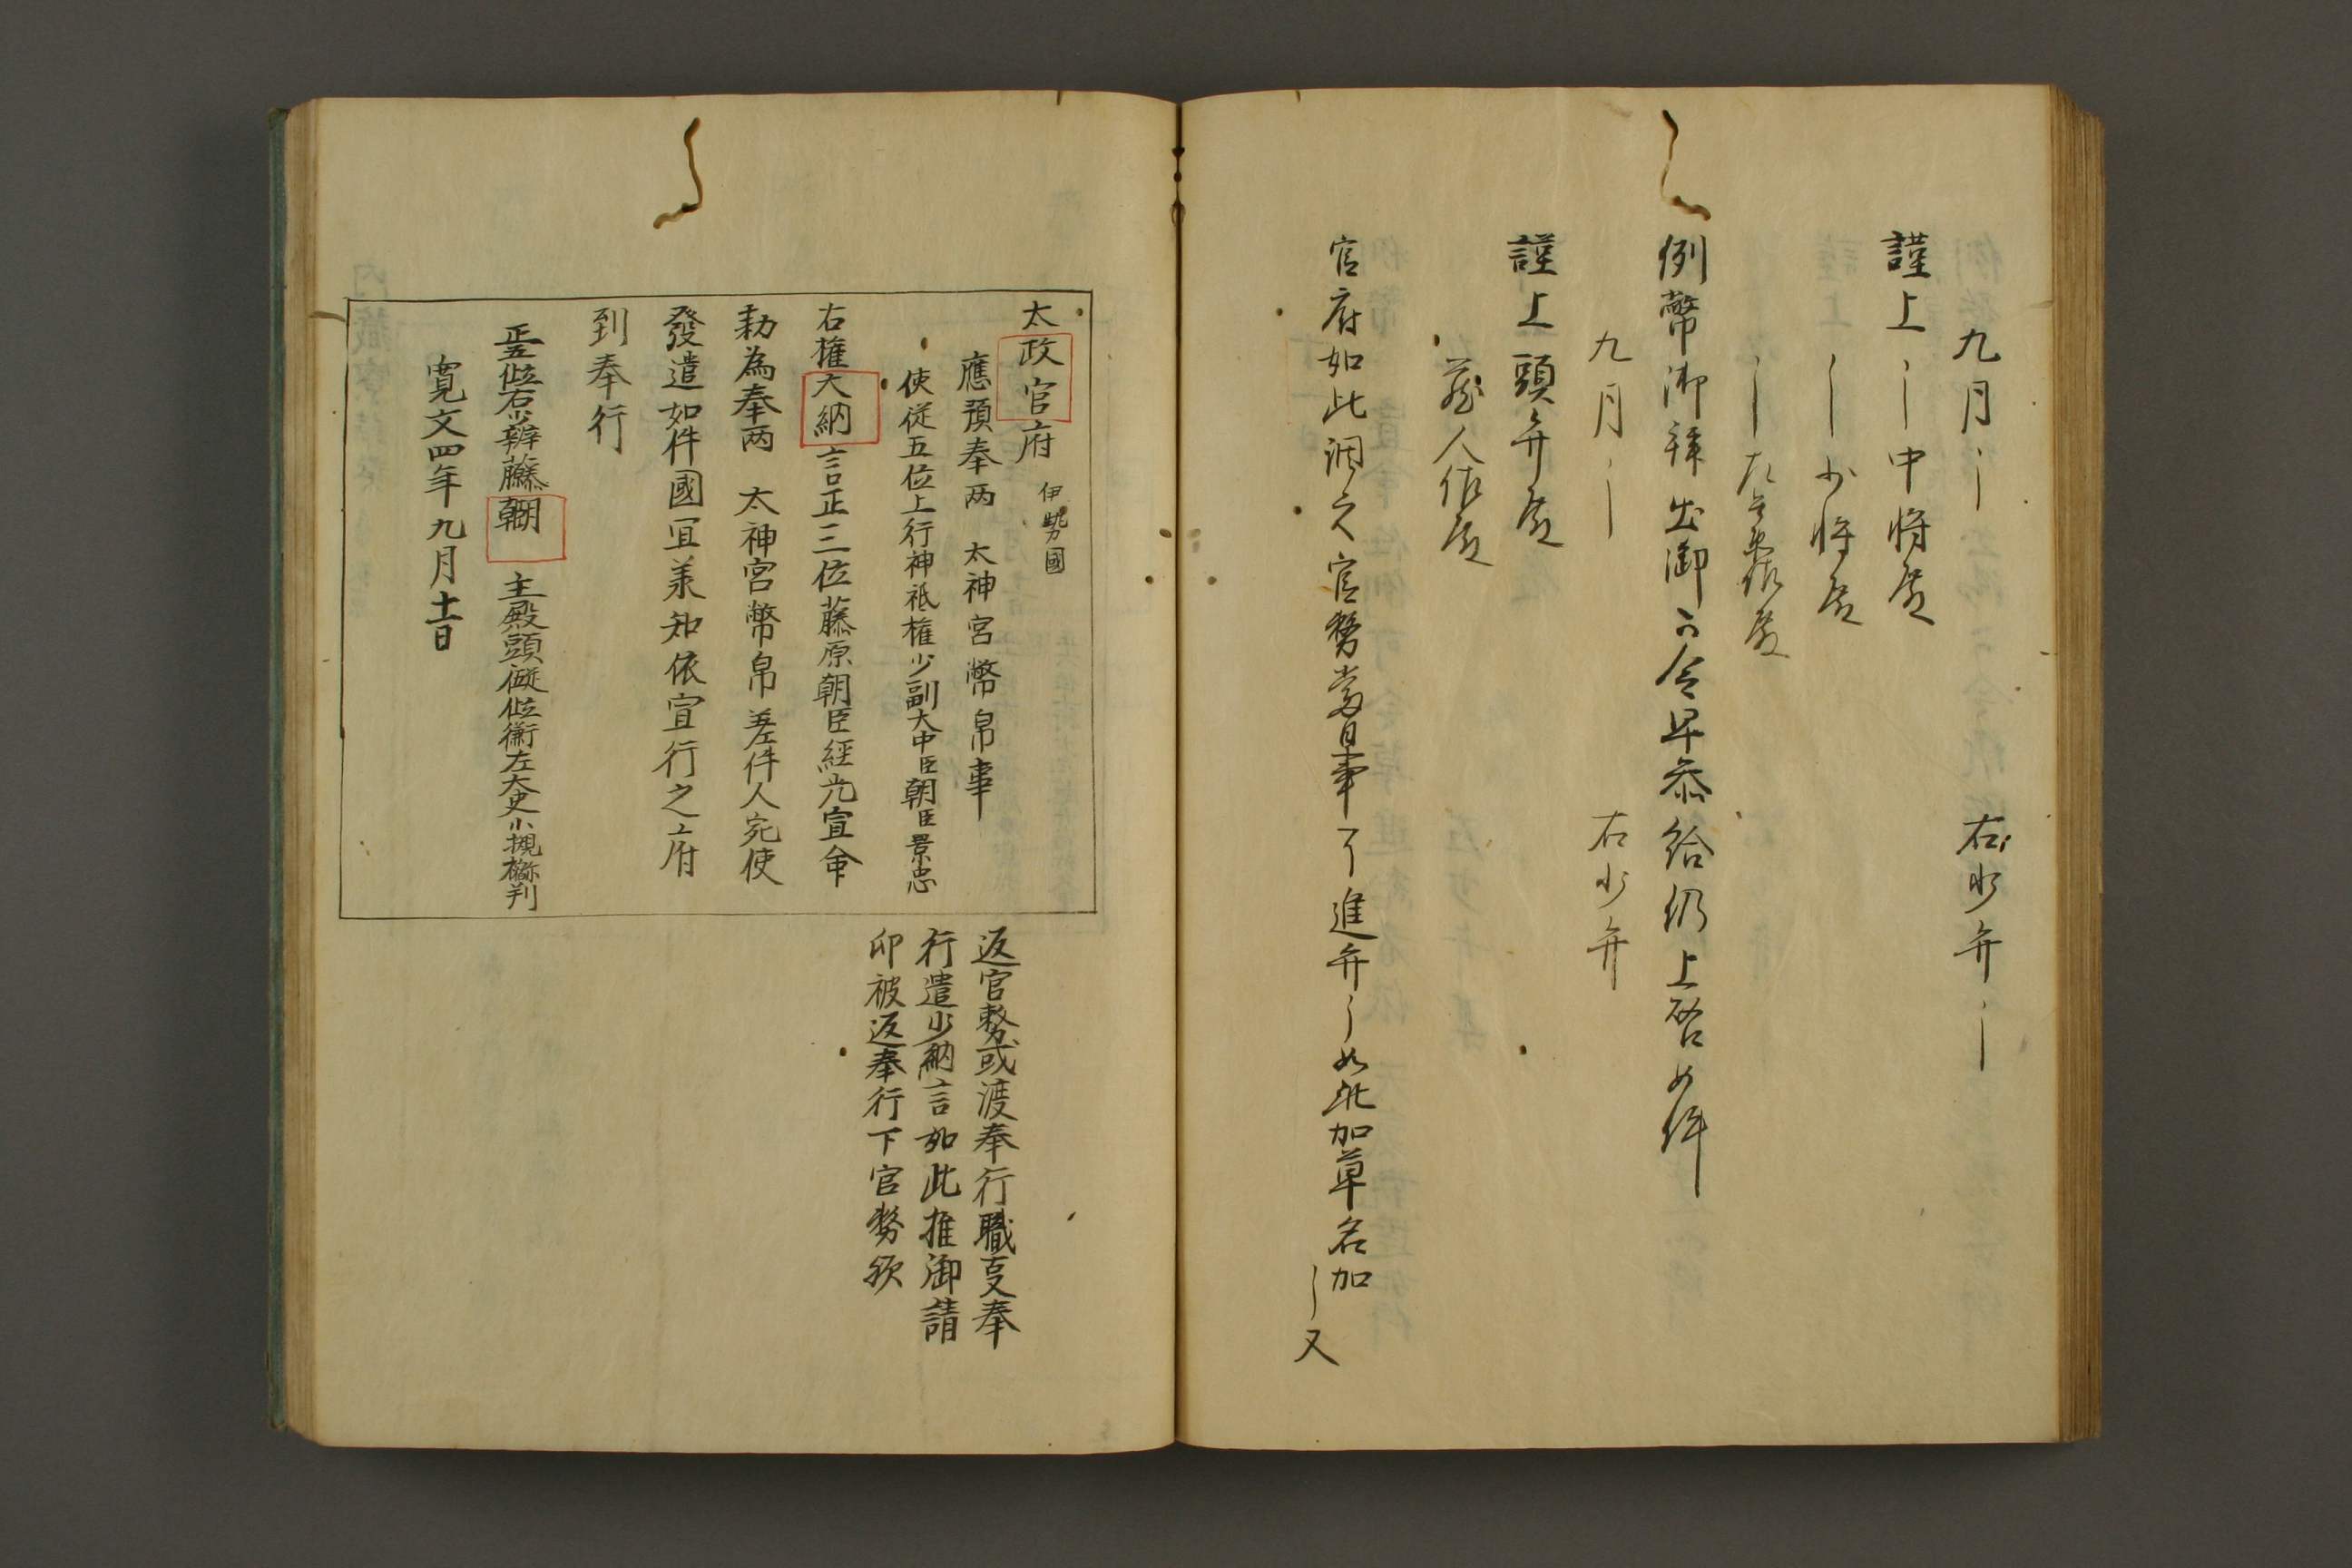 九月〻 右少弁〻
謹上〻中将殿
〻少将殿
〻左兵衛佐殿
例幣御拜出御可令早参給仍上啓如件
九月〻 右少弁
謹上頭弁殿
蔵人佐殿
官府如此調之官務當日事了進弁〻如此加草名加〻又
太政官府 伊勢國
應預奉两 太神宮幣帛事
使従五位上行神祇權少副大中臣朝臣景忠
右權大納言正三位藤原朝臣經光宣命
勅為奉两 太神宮幣帛差件人宛使
發遣如件國冝羕知依宣行之府
到奉行
正五位右少辨藤朝 主殿頭従位行左大史小槻判
寛文四年九月十一日
返官務或渡奉行職支奉
行遣少納言如此推御請
印被返奉行下官務欤